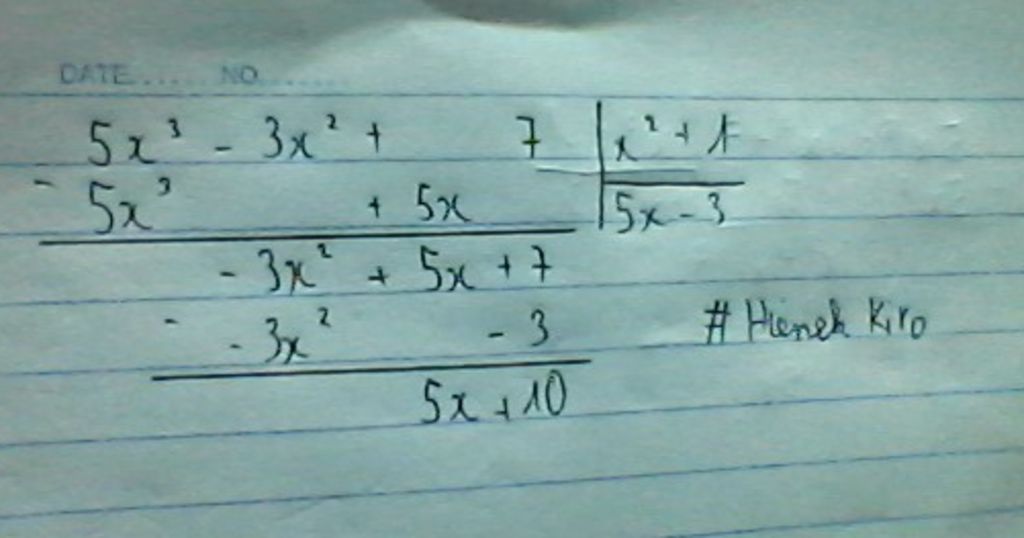 DATE...... NO.......
5x³ - 3x² + 7 | x² + 1
- 5x³ + 5x | 5x - 3
- 3x² + 5x + 7
- - 3x² - 3
# Hienek Kiro
5x + 10